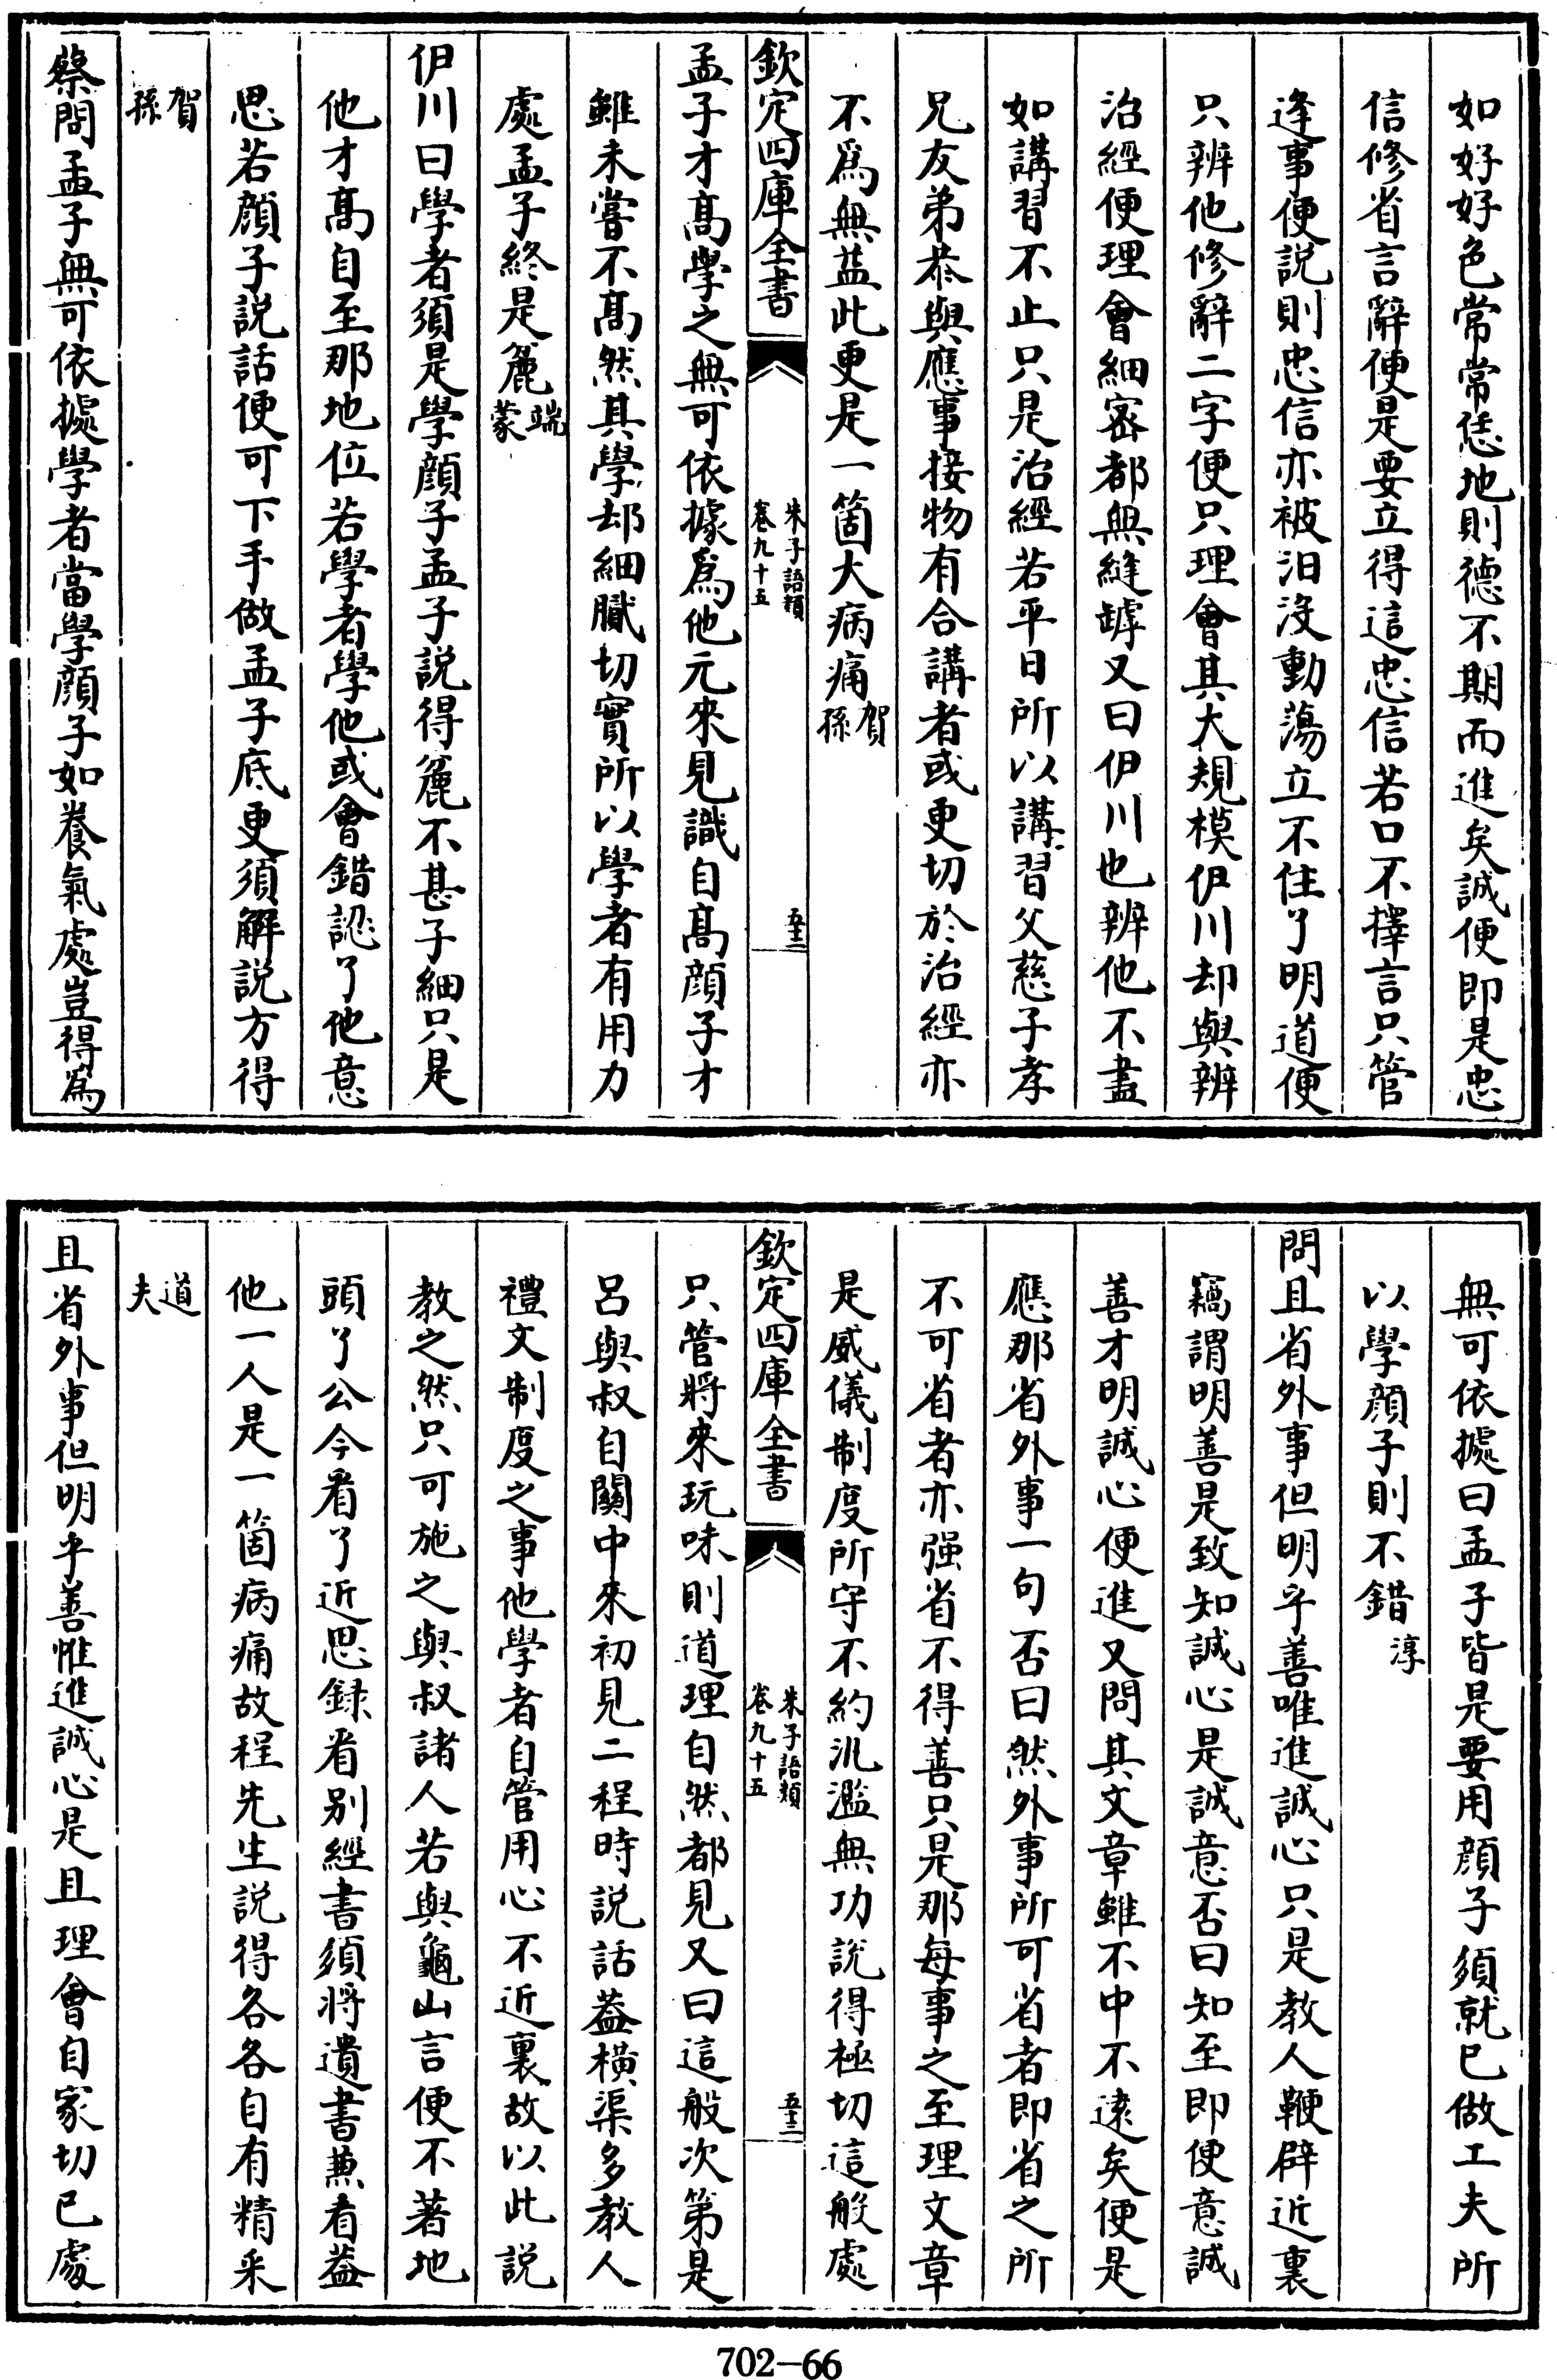 如好好色常常恁地則德不期而進矣誠便即是忠
信修省言辭便是要立得這忠信若口不擇言只管
逢事便説則忠信亦被汩沒動蕩立不住了明道便
只辨他修辭二字便只理會其大規模伊川却與辨
治經便理會細密都無縫罅又曰伊川也辨他不盡
如講習不止只是治經若平日所以講習父慈子孝
兄友弟恭與應事接物有合講者或更切於治經亦
不爲無益此更是一箇大病痛賀孫
欽定四庫全書
朱子語類
卷九十五
五十二
孟子才髙學之無可依據爲他元來見識自髙顔子才
雖未嘗不髙然其學却細膩切實所以學者有用力
處孟子終是麄端蒙
伊川曰學者須是學顔子孟子説得麄不甚子細只是
他才髙自至那地位若學者學他或會錯認了他意
思若顔子説話便可下手做孟子底更須解説方得
賀孫
蔡問孟子無可依據學者當學顔子如養氣處豈得爲
無可依據曰孟子皆是要用顔子須就已做工夫所
以學顔子則不錯淳
問且省外事但明乎善唯進誠心只是教人鞭辟近裏
竊謂明善是致知誠心是誠意否曰知至即便意誠
善才明誠心便進又問其文章雖不中不逺矣便是
應那省外事一句否曰然外事所可省者即省之所
不可省者亦强省不得善只是那每事之至理文章
是威儀制度所守不約汎濫無功説得極切這般處
欽定四庫全書
朱子語類
卷九十五
五十三
只管將來玩味則道理自然都見又曰這般次第是
呂與叔自關中來初見二程時説話葢橫渠多教人
禮文制度之事他學者自管用心不近裏故以此説
教之然只可施之與叔諸人若與龜山言便不著地
頭了公今看了近思録看别經書須將遺書兼看葢
他一人是一箇病痛故程先生説得各各自有精采
道夫
且省外事但明乎善惟進誠心是且理會自家切已處
702-66